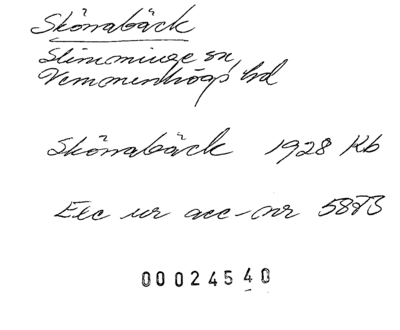 Skönabäck
Slimminge sn,
Vemmenhögs hd
Skönabäck 1928 Kb
Exc ur acc-nr 5883
00024540